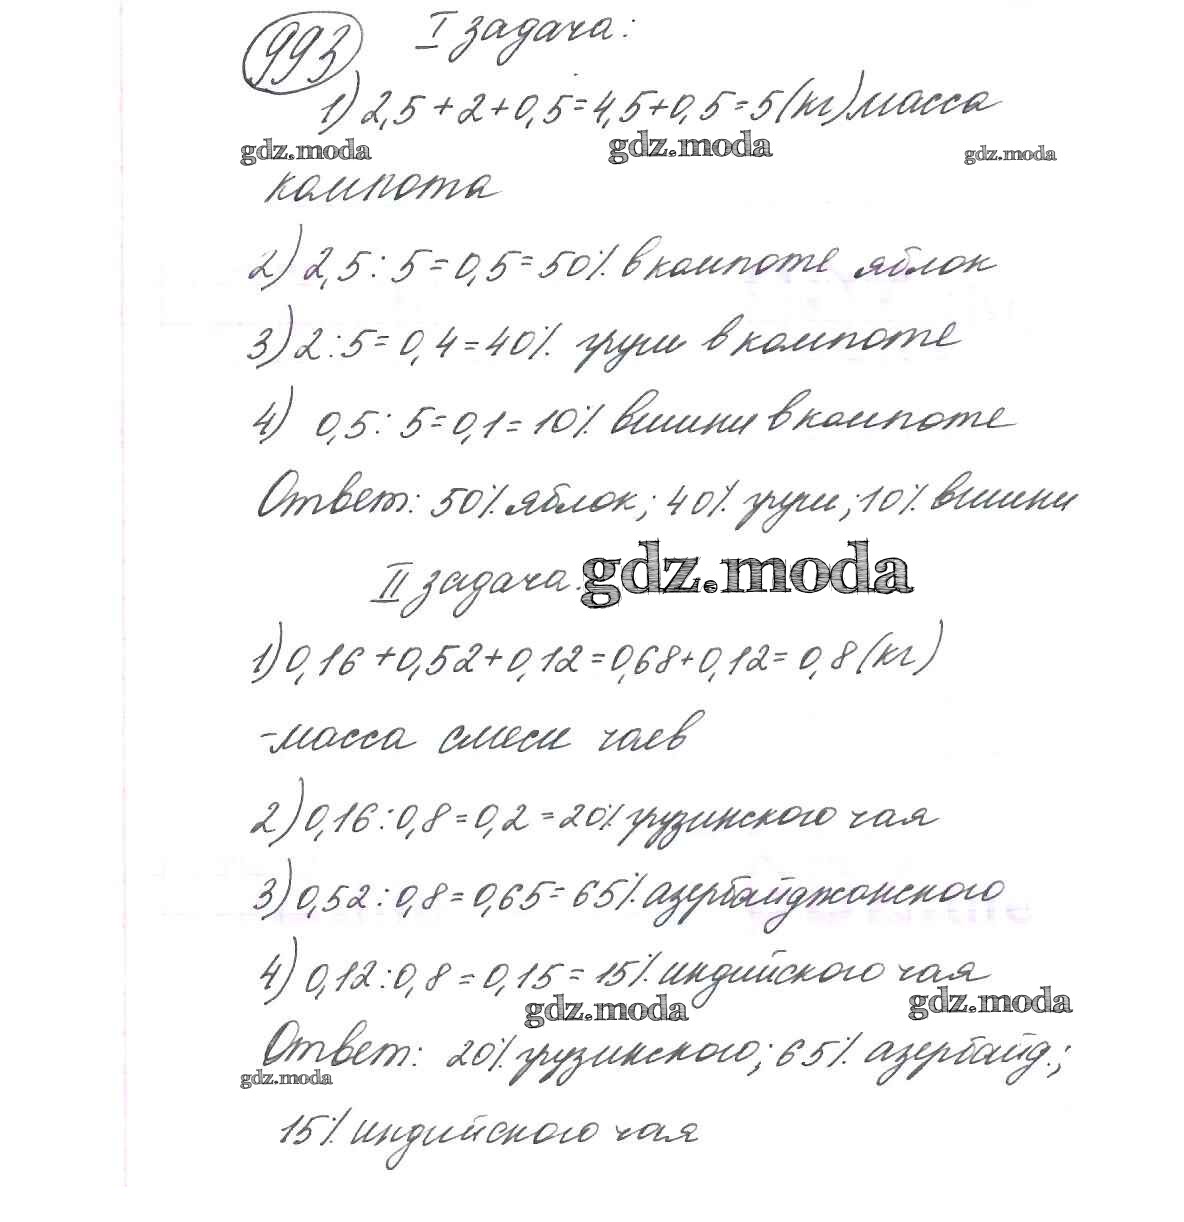 993 I задача:
1) 2,5+2+0,5=4,5+0,5=5(кг) масса
gdz.moda gdz.moda gdz.moda
компота
2) 2,5:5=0,5=50% в компоте яблок
3) 2:5=0,4=40% груш в компоте
4) 0,5:5=0,1=10% вишни в компоте
Ответ: 50% яблок; 40% груш; 10% вишни
II задача. gdz.moda
1) 0,16+0,52+0,12=0,68+0,12=0,8(кг)
-масса смеси чаев
2) 0,16:0,8=0,2=20% грузинского чая
3) 0,52:0,8=0,65=65% азербайджанского
4) 0,12:0,8=0,15=15% индийского чая
gdz.moda gdz.moda
Ответ: 20% грузинского; 65% азербайд.;
gdz.moda
15% индийского чая